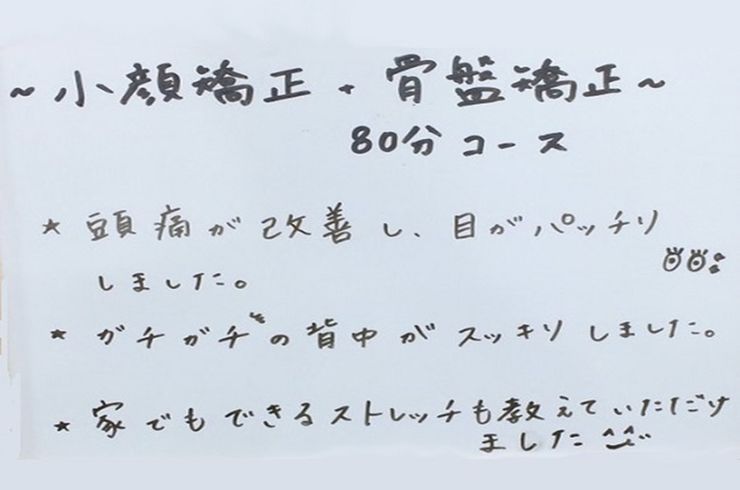 ~小顔矯正・骨盤矯正~
80分コース
★ 頭痛が改善し、目がパッチリ
しました。
★ ガチガチの背中がスッキリしました。
★ 家でもできるストレッチも教えていただけ
ました